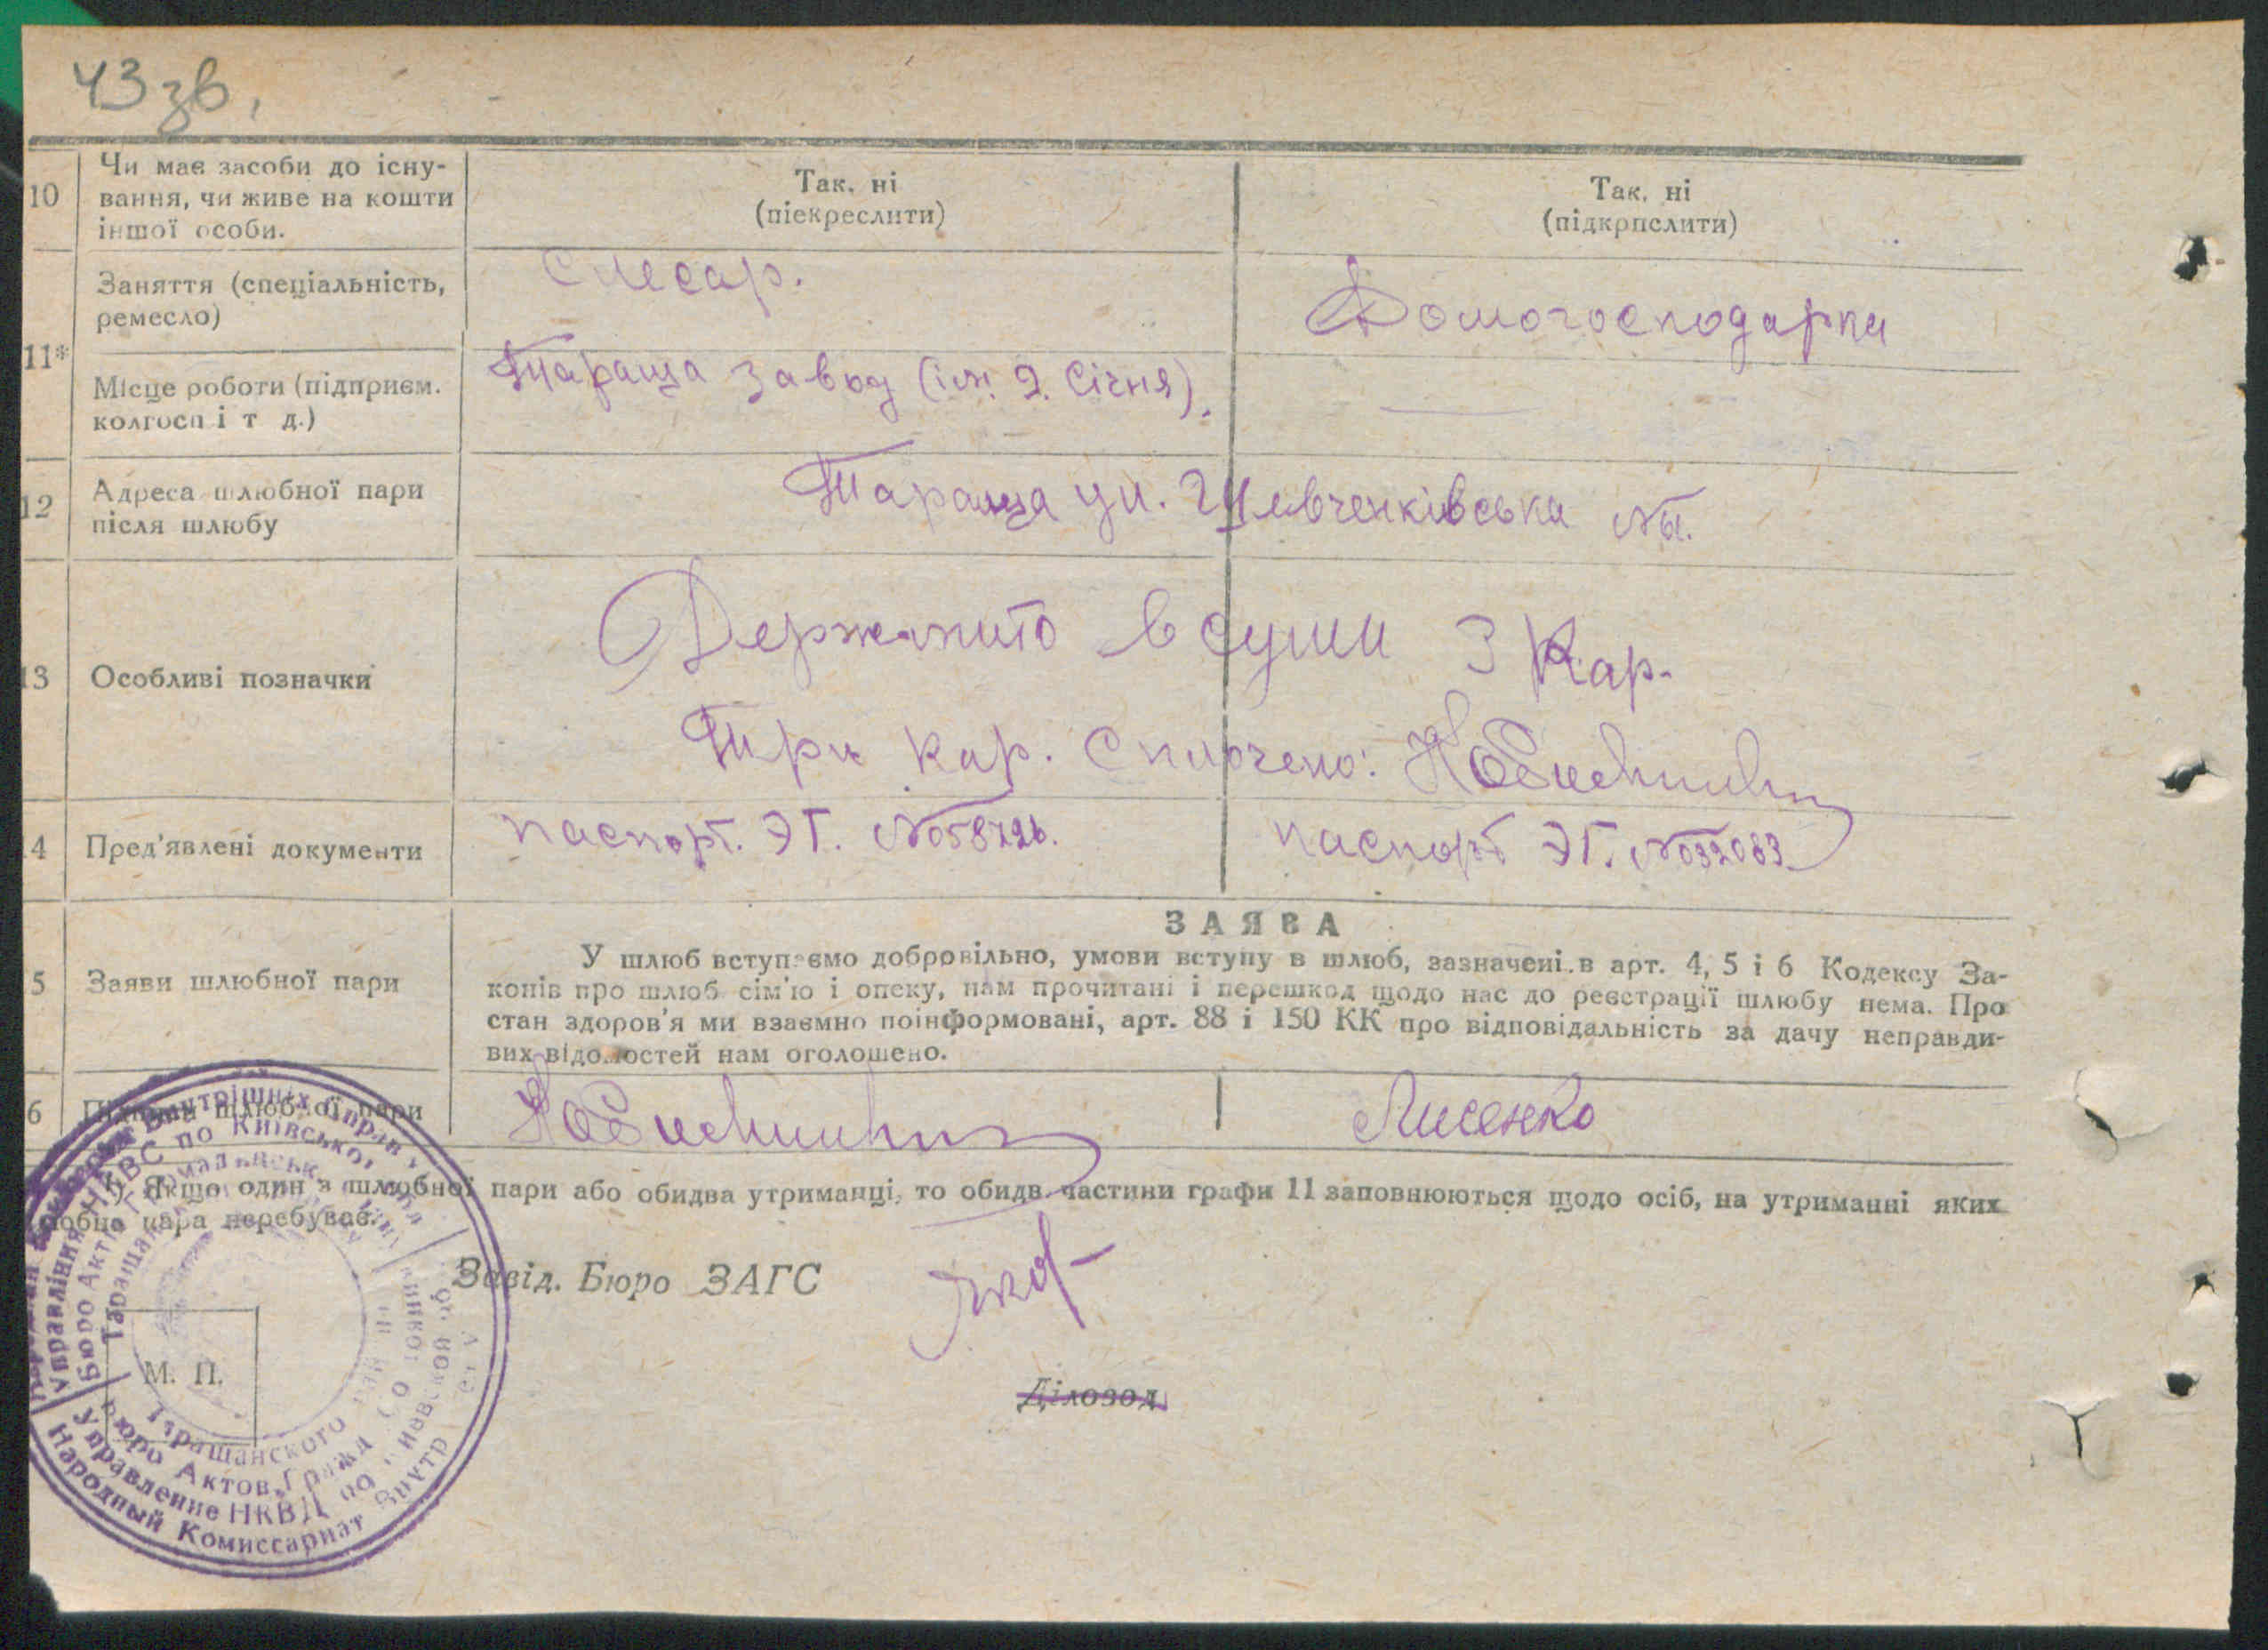 43 зв.
10
Чи має засоби до існу-
вання, чи живе на кошти
іншої особи.
Так, ні
(піекреслити)
Так, ні
(підкрпслити)
11*
Заняття (спеціальність,
ремесло)
Слесар.
Домогосподарка
Місце роботи (підприєм.
колгосп і т д.)
Тараща завод (ім. 9. Січня).
12
Адреса шлюбної пари
після шлюбу
Тараща ул. Шевченківська
13
Особливі позначки
Держмито в сумі 3 Кар.
Три кар. Сплочено:
4
Пред'явлені документи
паспорт. ЭГ. №
паспорт ЭГ. №
ЗАЯВА
5
Заяви шлюбної пари
У шлюб вступаємо добровільно, умови вступу в шлюб, зазначені в арт. 4, 5 і 6 Кодексу За-
конів про шлюб сім'ю і опеку, нам прочитані і перешкод щодо нас до реєстрації шлюбу нема. Про
стан здоров'я ми взаємно поінформовані, арт. 88 і 150 КК про відповідальність за дачу неправди-
вих відомостей нам оголошено.
6
Підписи шлюбної пари
Лисенко
Якщо один з шлюбної пари або обидва утриманці, то обидв частини графи 11 заповнюються щодо осіб, на утриманні яких
пара перебуває.
Завід. Бюро ЗАГС
Діловод
М. П.
Управління НКВС по Київської
Бюро Актів
Таращанського
Бюро Актов Гражд
Управление НКВД по
Народный Комиссариат Внутр